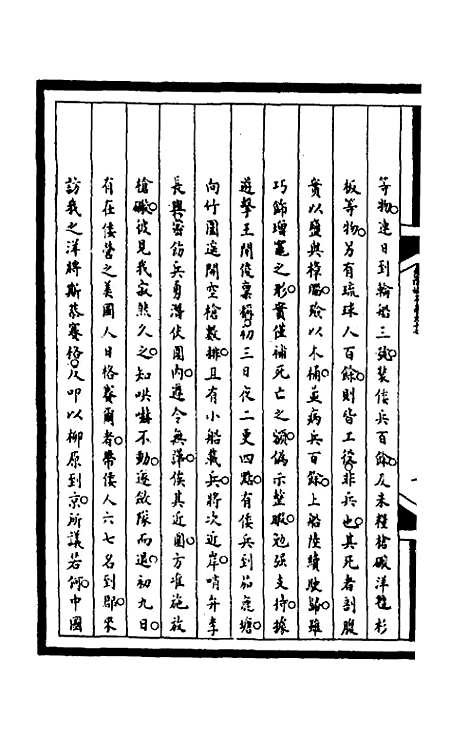 等物連日到輪船三號裝倭兵百餘及米糧槍礮洋氊杉
板等物另有琉球人百餘則皆工役非兵也其死者剖腹
實以鹽與樟腦殮以木桶並病兵百餘上船陸續駛歸雖
巧飾增竈之形實僅補死亡之額偽示整暇勉強支持據
遊擊王開俊稟稱初三日夜二更四點有倭兵到茄鹿塘
向竹圍遥開空槍數排且有小船載兵將次近岸哨弁李
長興密飭兵勇潛伏圍內遵令無譁俟其近圍方准施放
槍礮彼見我寂然久之知哄嚇不動逐斂隊而退初九日
有在倭營之美國人日格賽爾者帶倭人六七名到郡來
訪我之洋將斯恭賽格及叩以柳原到京所議若何中國